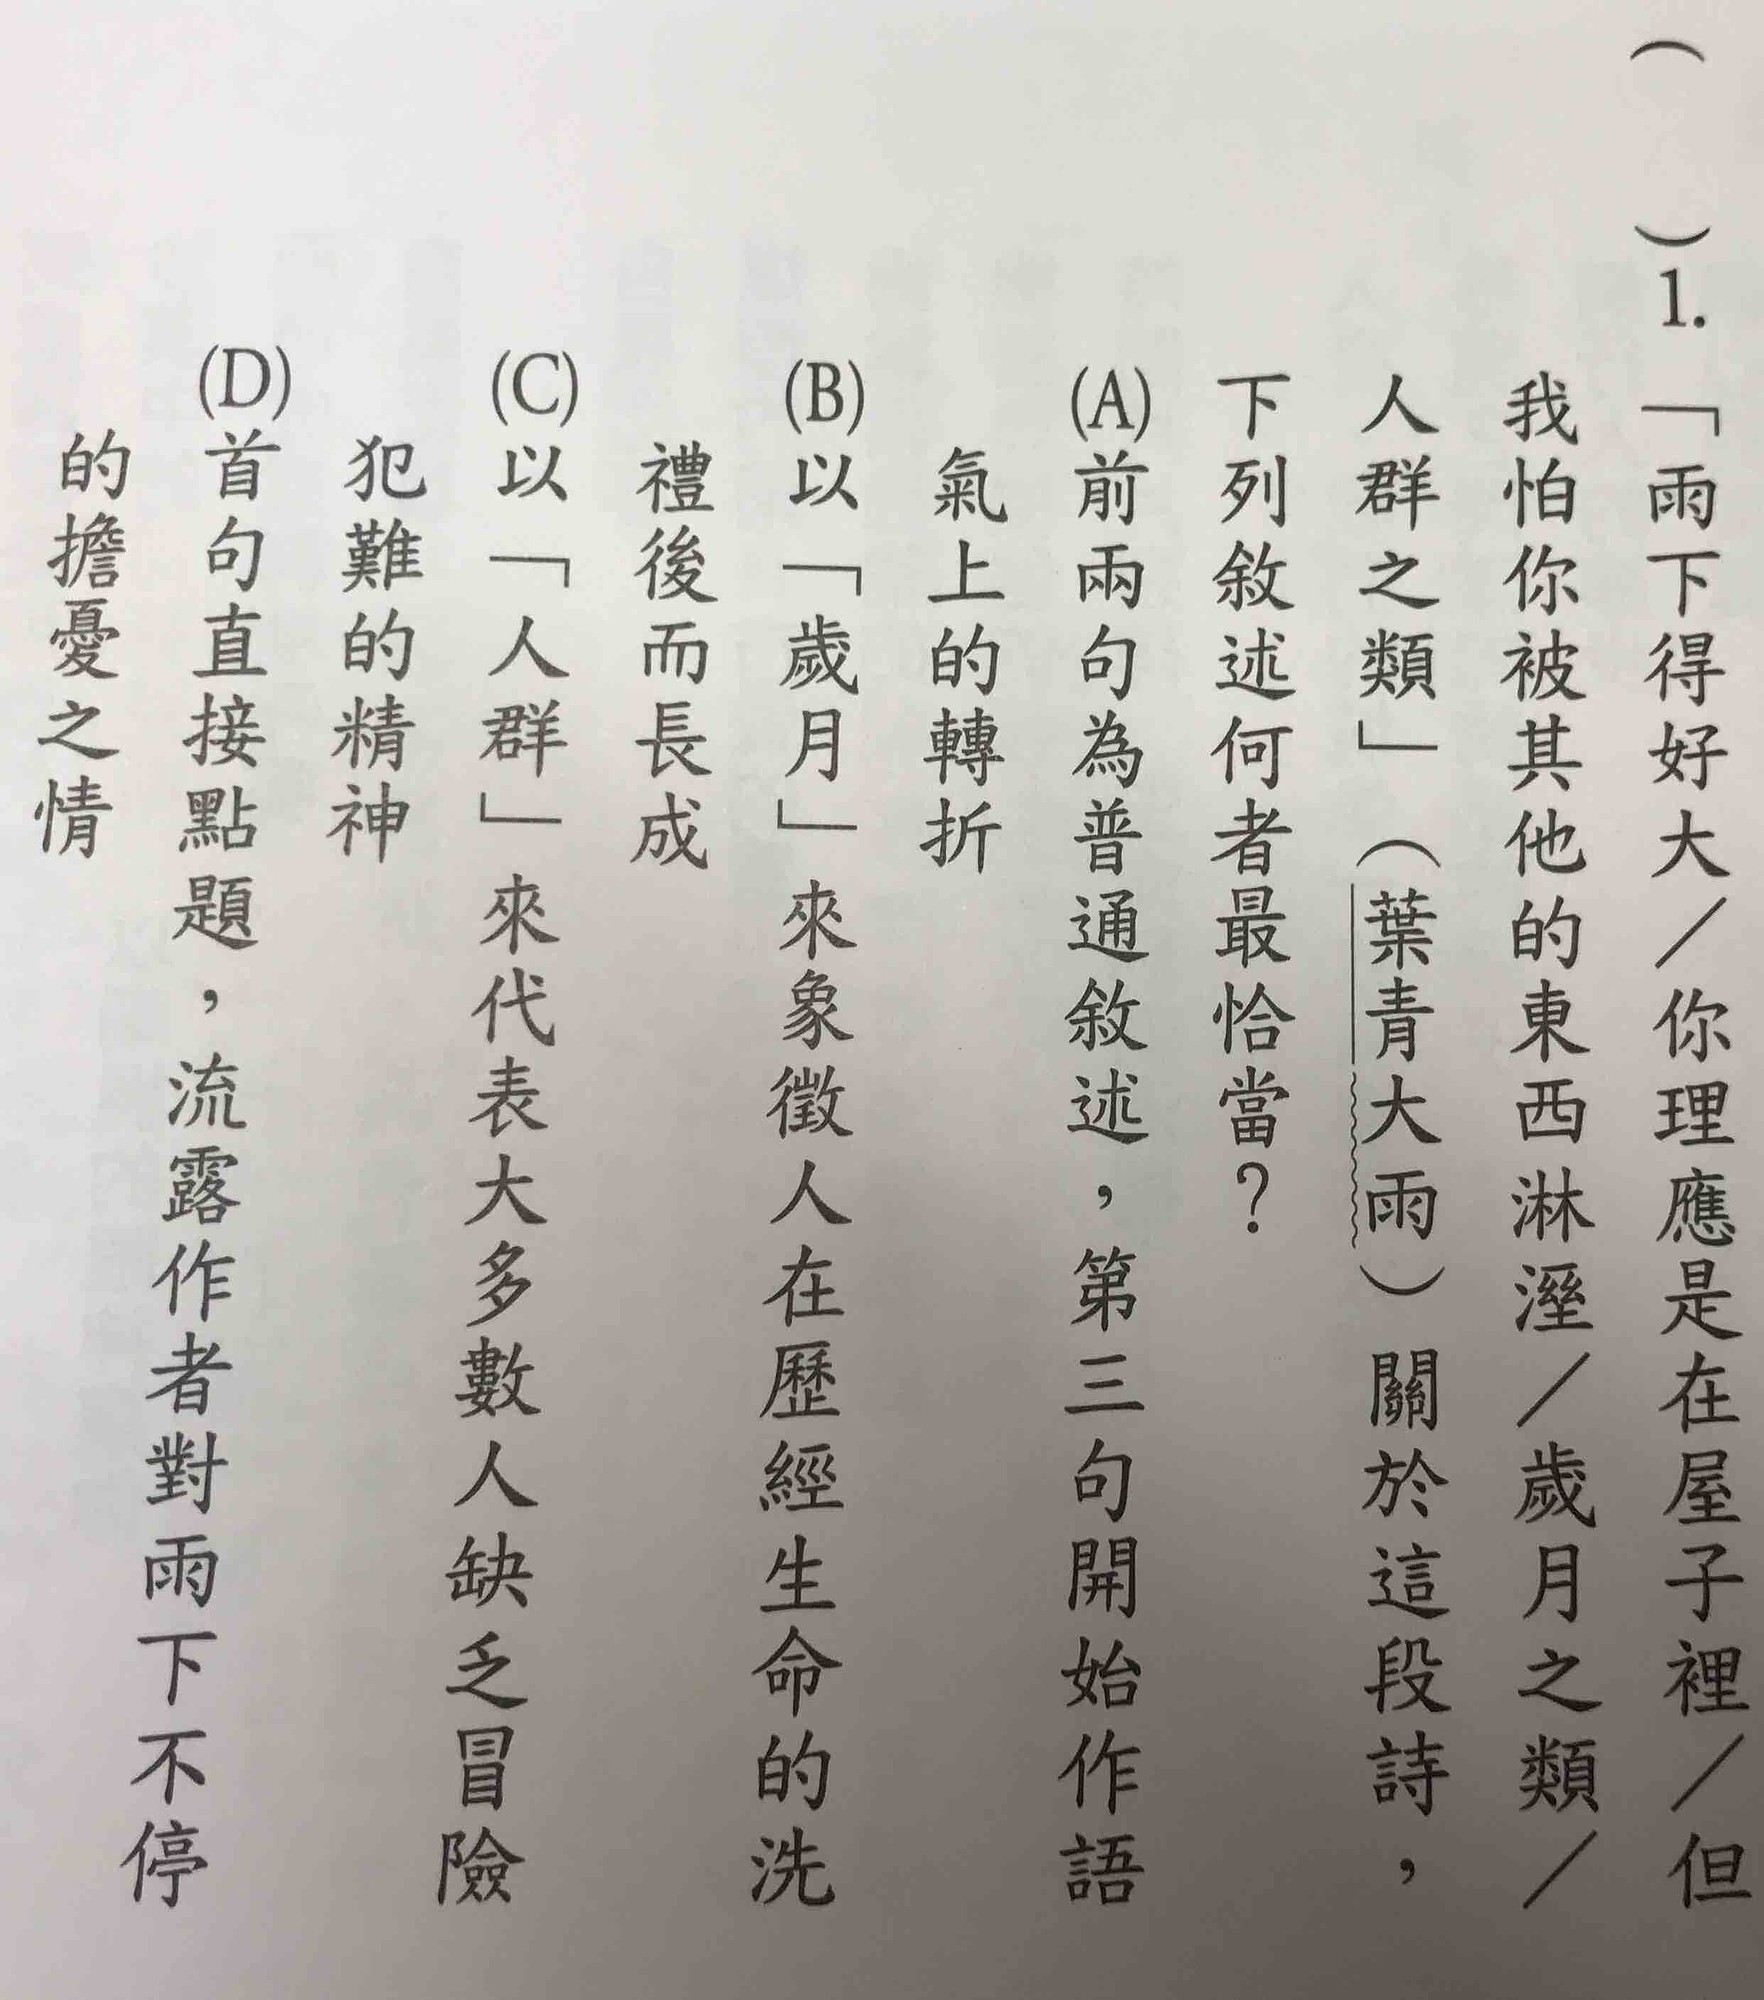 （　　）1.「雨下得好大／你理應是在屋子裡／但
我怕你被其他的東西淋溼／歲月之類／
人群之類」（葉青大雨）關於這段詩，
下列敘述何者最恰當？
(A)前兩句為普通敘述，第三句開始作語
氣上的轉折
(B)以「歲月」來象徵人在歷經生命的洗
禮後而長成
(C)以「人群」來代表大多數人缺乏冒險
犯難的精神
(D)首句直接點題，流露作者對雨下不停
的擔憂之情